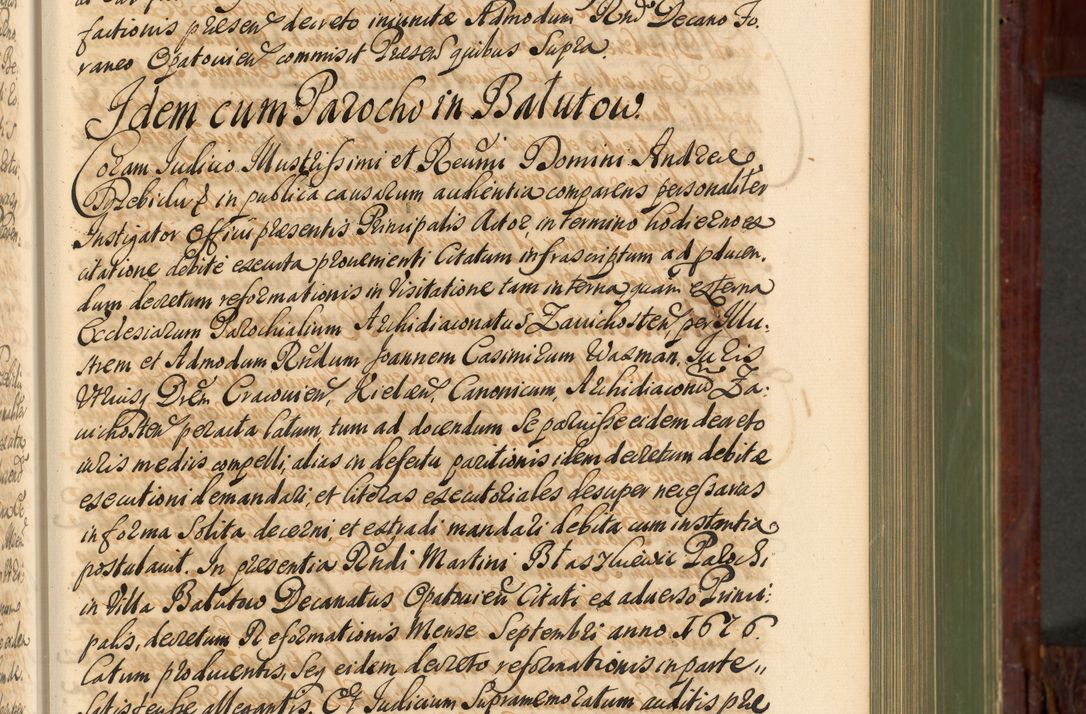 factionis presen decreto iniunctæ Admodum Rndo Decano Fo
raneo Opatovien commisit Presen quibus supra.
Idem cum Parocho in Batutow.
Coram Iudicio Illustrissimi et Reumi Domini Andreæ
Trzebicki in publica causarum audientia comparens personaliter
Instigator Officii præsentis Principalis Actor, in termino hodierno ex
citatione debite executa provenienti Citatum infrascriptum ad pducen:
dum decretum reformationis in Visitatione tam interna quam externa
Ecclesiarum Parochialium Archidiaconatus Zavichosten per Illu:
strem et Admodum Rndum Joannem Casimirum Waxman, Juris
Utriusq Drem Cracovien, Kielcen, Canonicum, Archidiaconum Za:
vichosten peracta latum, tum ad docendum se paruisse eidem decreto
iuris mediis compelli, alias in defectu paritionis idem decretum debitæ
executioni demandari, et literas executoriales desuper necessarias
in forma solita decerni, et extradi mandari debita cum instantia
postulavit. In præsentia Rndi Martini Btaszkiewic Parochi
in Villa Batutow Decanatus Opatovien Citati ex adverso Princi:
palis, decretum Reformationis Mense Septembri anno 1676.
latum producentis, seq eidem decreto reformationis in parte
satisfecisse allegantis. Et Iudicium supramemoratum auditis præ